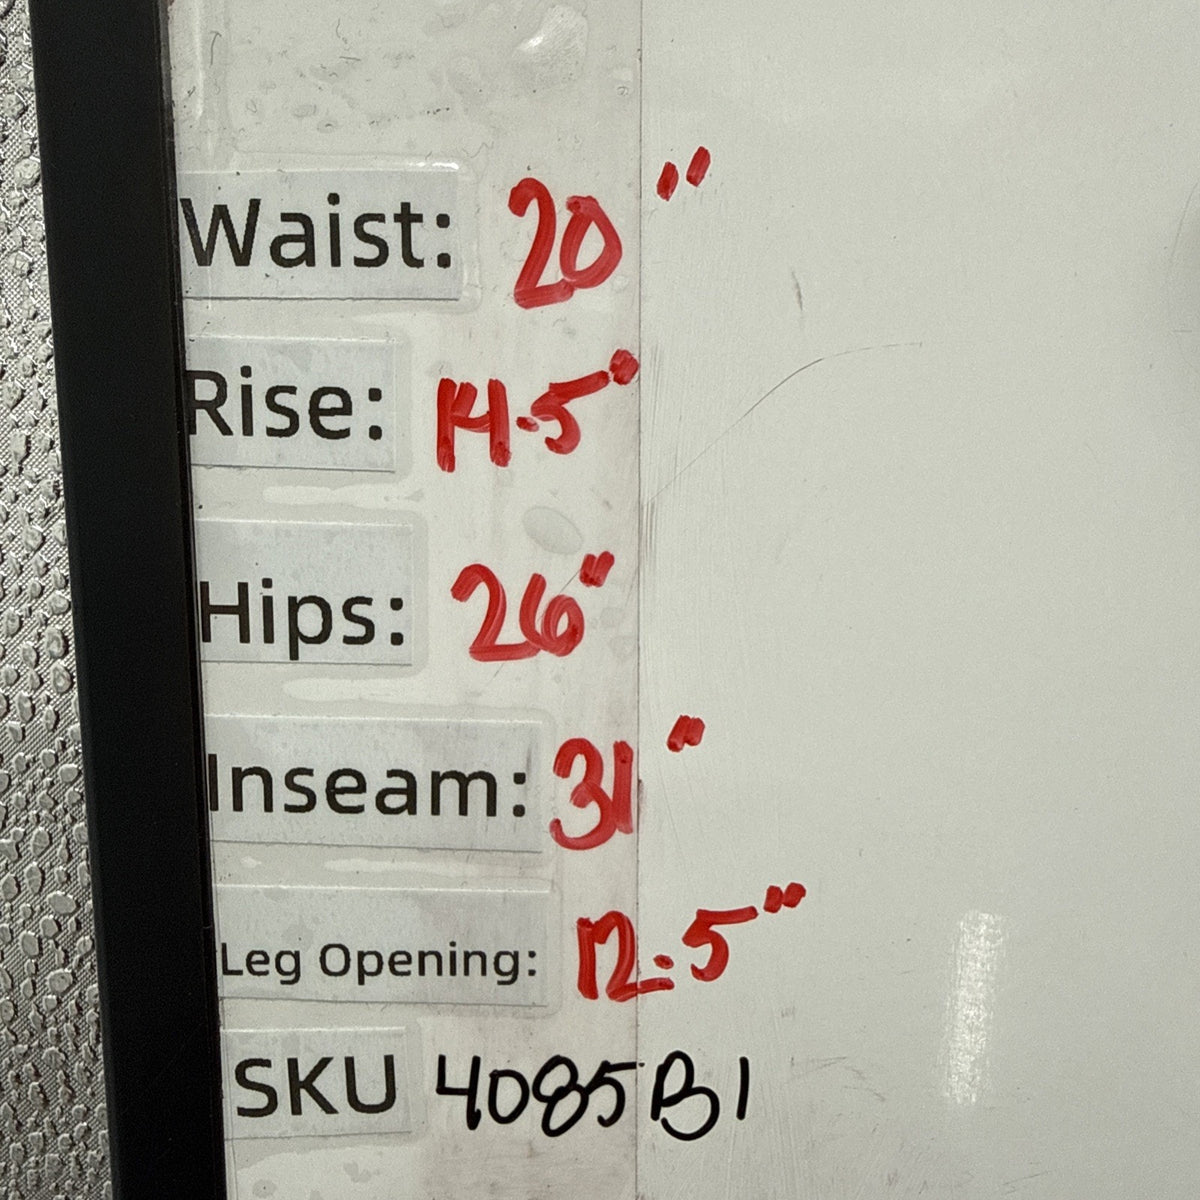 Waist: 20"
Rise: 14.5"
Hips: 26"
Inseam: 31"
Leg Opening: 12.5"
SKU 4085B1